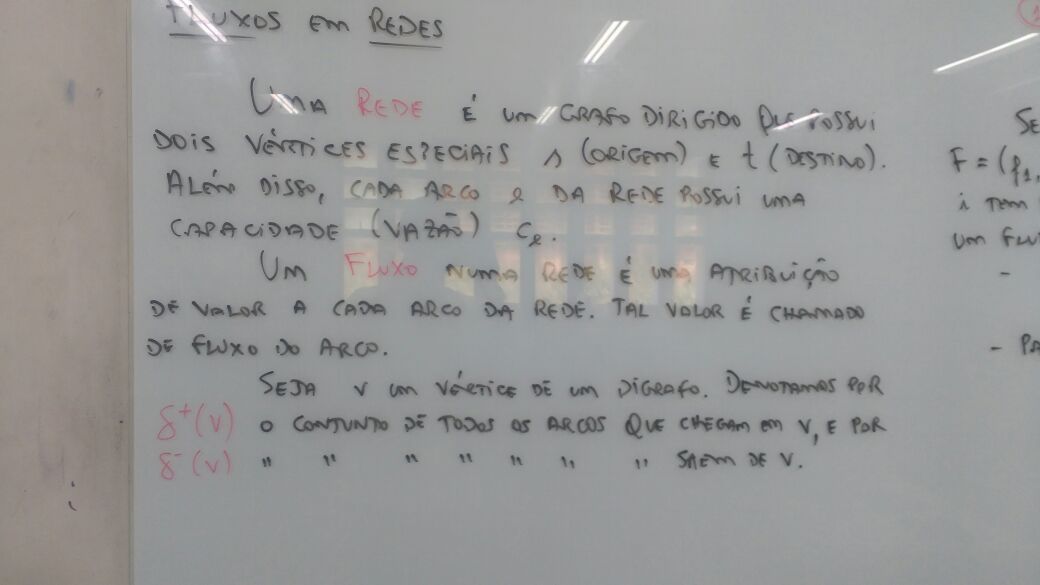 FLUXOS EM REDES
UMA REDE É UM GRAFO DIRIGIDO QUE POSSUI
DOIS VÉRTICES ESPECIAIS s (ORIGEM) E t (DESTINO).
ALÉM DISSO, CADA ARCO e DA REDE POSSUI UMA
CAPACIDADE (VAZÃO) Ce.
UM FLUXO NUMA REDE É UMA ATRIBUIÇÃO
DE VALOR A CADA ARCO DA REDE. TAL VALOR É CHAMADO
DE FLUXO DO ARCO.
SEJA V UM VÉRTICE DE UM DIGRAFO. DENOTAMOS POR
δ⁺(V) O CONJUNTO DE TODOS OS ARCOS QUE CHEGAM EM V, E POR
δ⁻(V) " " " " " " " SAEM DE V.
SE
F = (f1,
i TEM
UM FLU
-
- PA